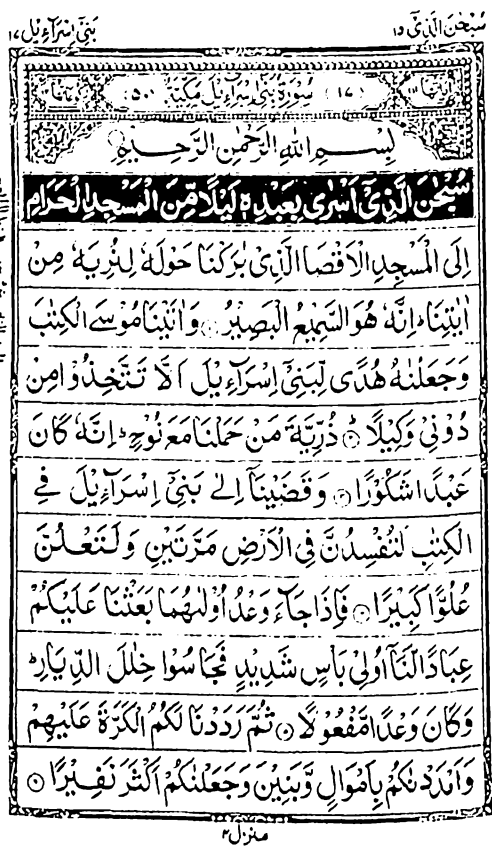 سُبْحٰنَ الَّذِیْۤ ۱۵
بَنِیْۤ اِسْرَآءِیْل ۱۷
(۱۷) سُوْرَةُ بَنِیْۤ اِسْرَآءِیْلَ مَكِّیَّةٌ (۵۰)
بِسْمِ اللّٰهِ الرَّحْمٰنِ الرَّحِیْمِ
سُبْحٰنَ الَّذِیْۤ اَسْرٰى بِعَبْدِهٖ لَیْلًا مِّنَ الْمَسْجِدِ الْحَرَامِ
اِلَى الْمَسْجِدِ الْاَقْصَا الَّذِیْ بٰرَكْنَا حَوْلَهٗ لِنُرِیَهٗ مِنْ
اٰیٰتِنَا ؕ اِنَّهٗ هُوَ السَّمِیْعُ الْبَصِیْرُ ۱ وَ اٰتَیْنَا مُوْسَى الْكِتٰبَ
وَ جَعَلْنٰهُ هُدًى لِّبَنِیْۤ اِسْرَآءِیْلَ اَلَّا تَتَّخِذُوْا مِنْ
دُوْنِیْ وَكِیْلًا ۲ ذُرِّیَّةَ مَنْ حَمَلْنَا مَعَ نُوْحٍ ؕ اِنَّهٗ كَانَ
عَبْدًا شَكُوْرًا ۳ وَ قَضَیْنَاۤ اِلٰى بَنِیْۤ اِسْرَآءِیْلَ فِی
الْكِتٰبِ لَتُفْسِدُنَّ فِی الْاَرْضِ مَرَّتَیْنِ وَ لَتَعْلُنَّ
عُلُوًّا كَبِیْرًا ۴ فَاِذَا جَآءَ وَعْدُ اُوْلٰىهُمَا بَعَثْنَا عَلَیْكُمْ
عِبَادًا لَّنَاۤ اُولِیْ بَاْسٍ شَدِیْدٍ فَجَاسُوْا خِلٰلَ الدِّیَارِ ؕ
وَ كَانَ وَعْدًا مَّفْعُوْلًا ۵ ثُمَّ رَدَدْنَا لَكُمُ الْكَرَّةَ عَلَیْهِمْ
وَ اَمْدَدْنٰكُمْ بِاَمْوَالٍ وَّ بَنِیْنَ وَ جَعَلْنٰكُمْ اَكْثَرَ نَفِیْرًا ۶
منزل ۴